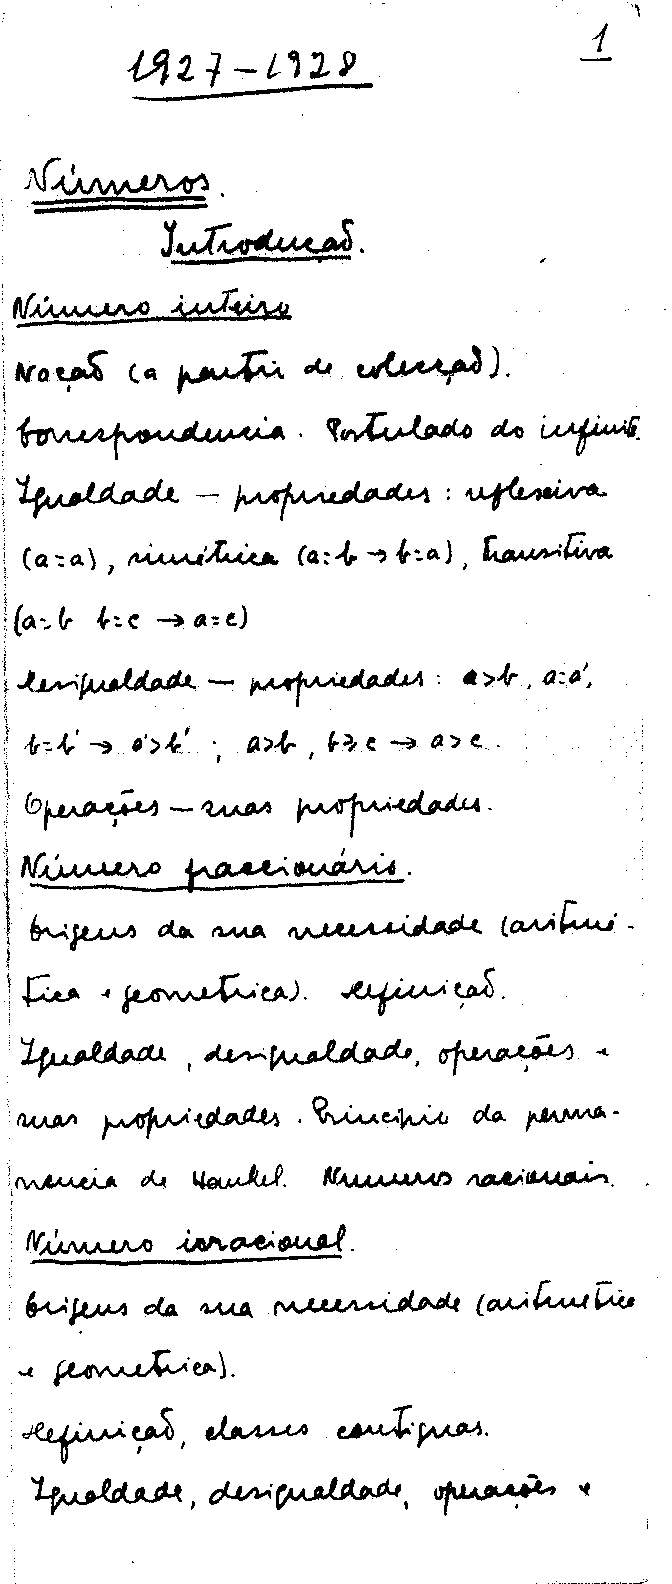 1
1927-1928
Números.
Introdução.
Número inteiro
Noção (a partir de colecção).
Correspondencia. Postulado do infinito.
Igualdade — propriedades: reflexiva
(a=a), simétrica (a=b → b=a), transitiva
(a=b b=c → a=c)
Desigualdade — propriedades: a>b, a=a',
b=b' → a'>b' ; a>b, b>c → a>c.
Operações — suas propriedades.
Número fraccionário.
Origens da sua necessidade (aritmé-
tica e geometrica). Definição.
Igualdade, desigualdade, operações e
suas propriedades. Principio da perma-
nencia de Hankel. Numeros racionais.
Número irracional.
Origens da sua necessidade (aritmetica
e geometrica).
Definição, classes contiguas.
Igualdade, desigualdade, operações e